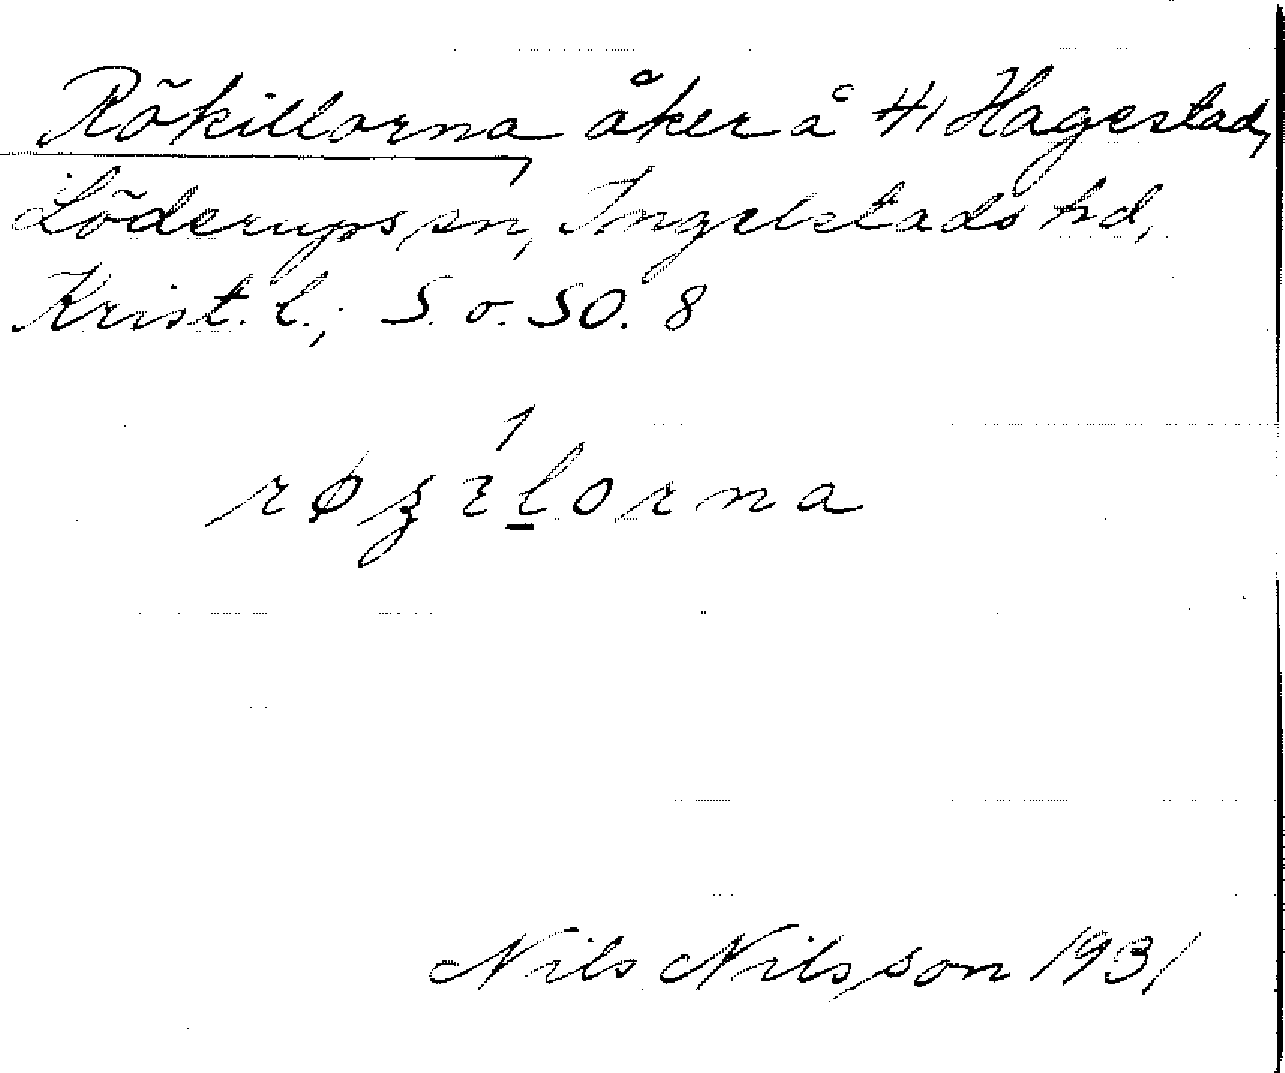 Rökillorna, åker å 41 Hagestad,
Löderups sn, Ingelstads hd,
Krist. l.; S. o. SO. 8
røgɪlorna
Nils Nilsson 1931